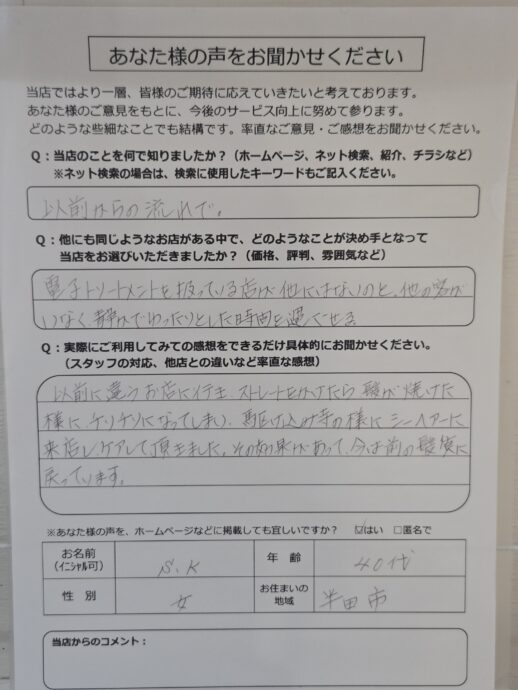 あなた様の声をお聞かせください
当店ではより一層、皆様のご期待に応えていきたいと考えております。
あなた様のご意見をもとに、今後のサービス向上に努めて参ります。
どのような些細なことでも結構です。率直なご意見・ご感想をお聞かせください。
Q：当店のことを何で知りましたか？（ホームページ、ネット検索、紹介、チラシなど）
※ネット検索の場合は、検索に使用したキーワードもご記入ください。
以前からの流れで。
Q：他にも同じようなお店がある中で、どのようなことが決め手となって
当店をお選びいただきましたか？（価格、評判、雰囲気など）
電子トリートメントを扱っている店が他にはないのと、他の客が
いなく静かでゆったりとした時間を過ごせる
Q：実際にご利用してみての感想をできるだけ具体的にお聞かせください。
（スタッフの対応、他店との違いなど率直な感想）
以前に違うお店に行き、ストレートをかけたら髪が焼けた
様に、チリチリになってしまい、駆け込み寺の様にシーヘアーに
来店しケアして頂きました。その効果があって、今は前の髪質に
戻っています。
※あなた様の声を、ホームページなどに掲載しても宜しいですか？ ☑はい □匿名で
お名前 S.K 年 齢 40代
（イニシャル可）
性 別 女 お住まいの地域 半田市
当店からのコメント：